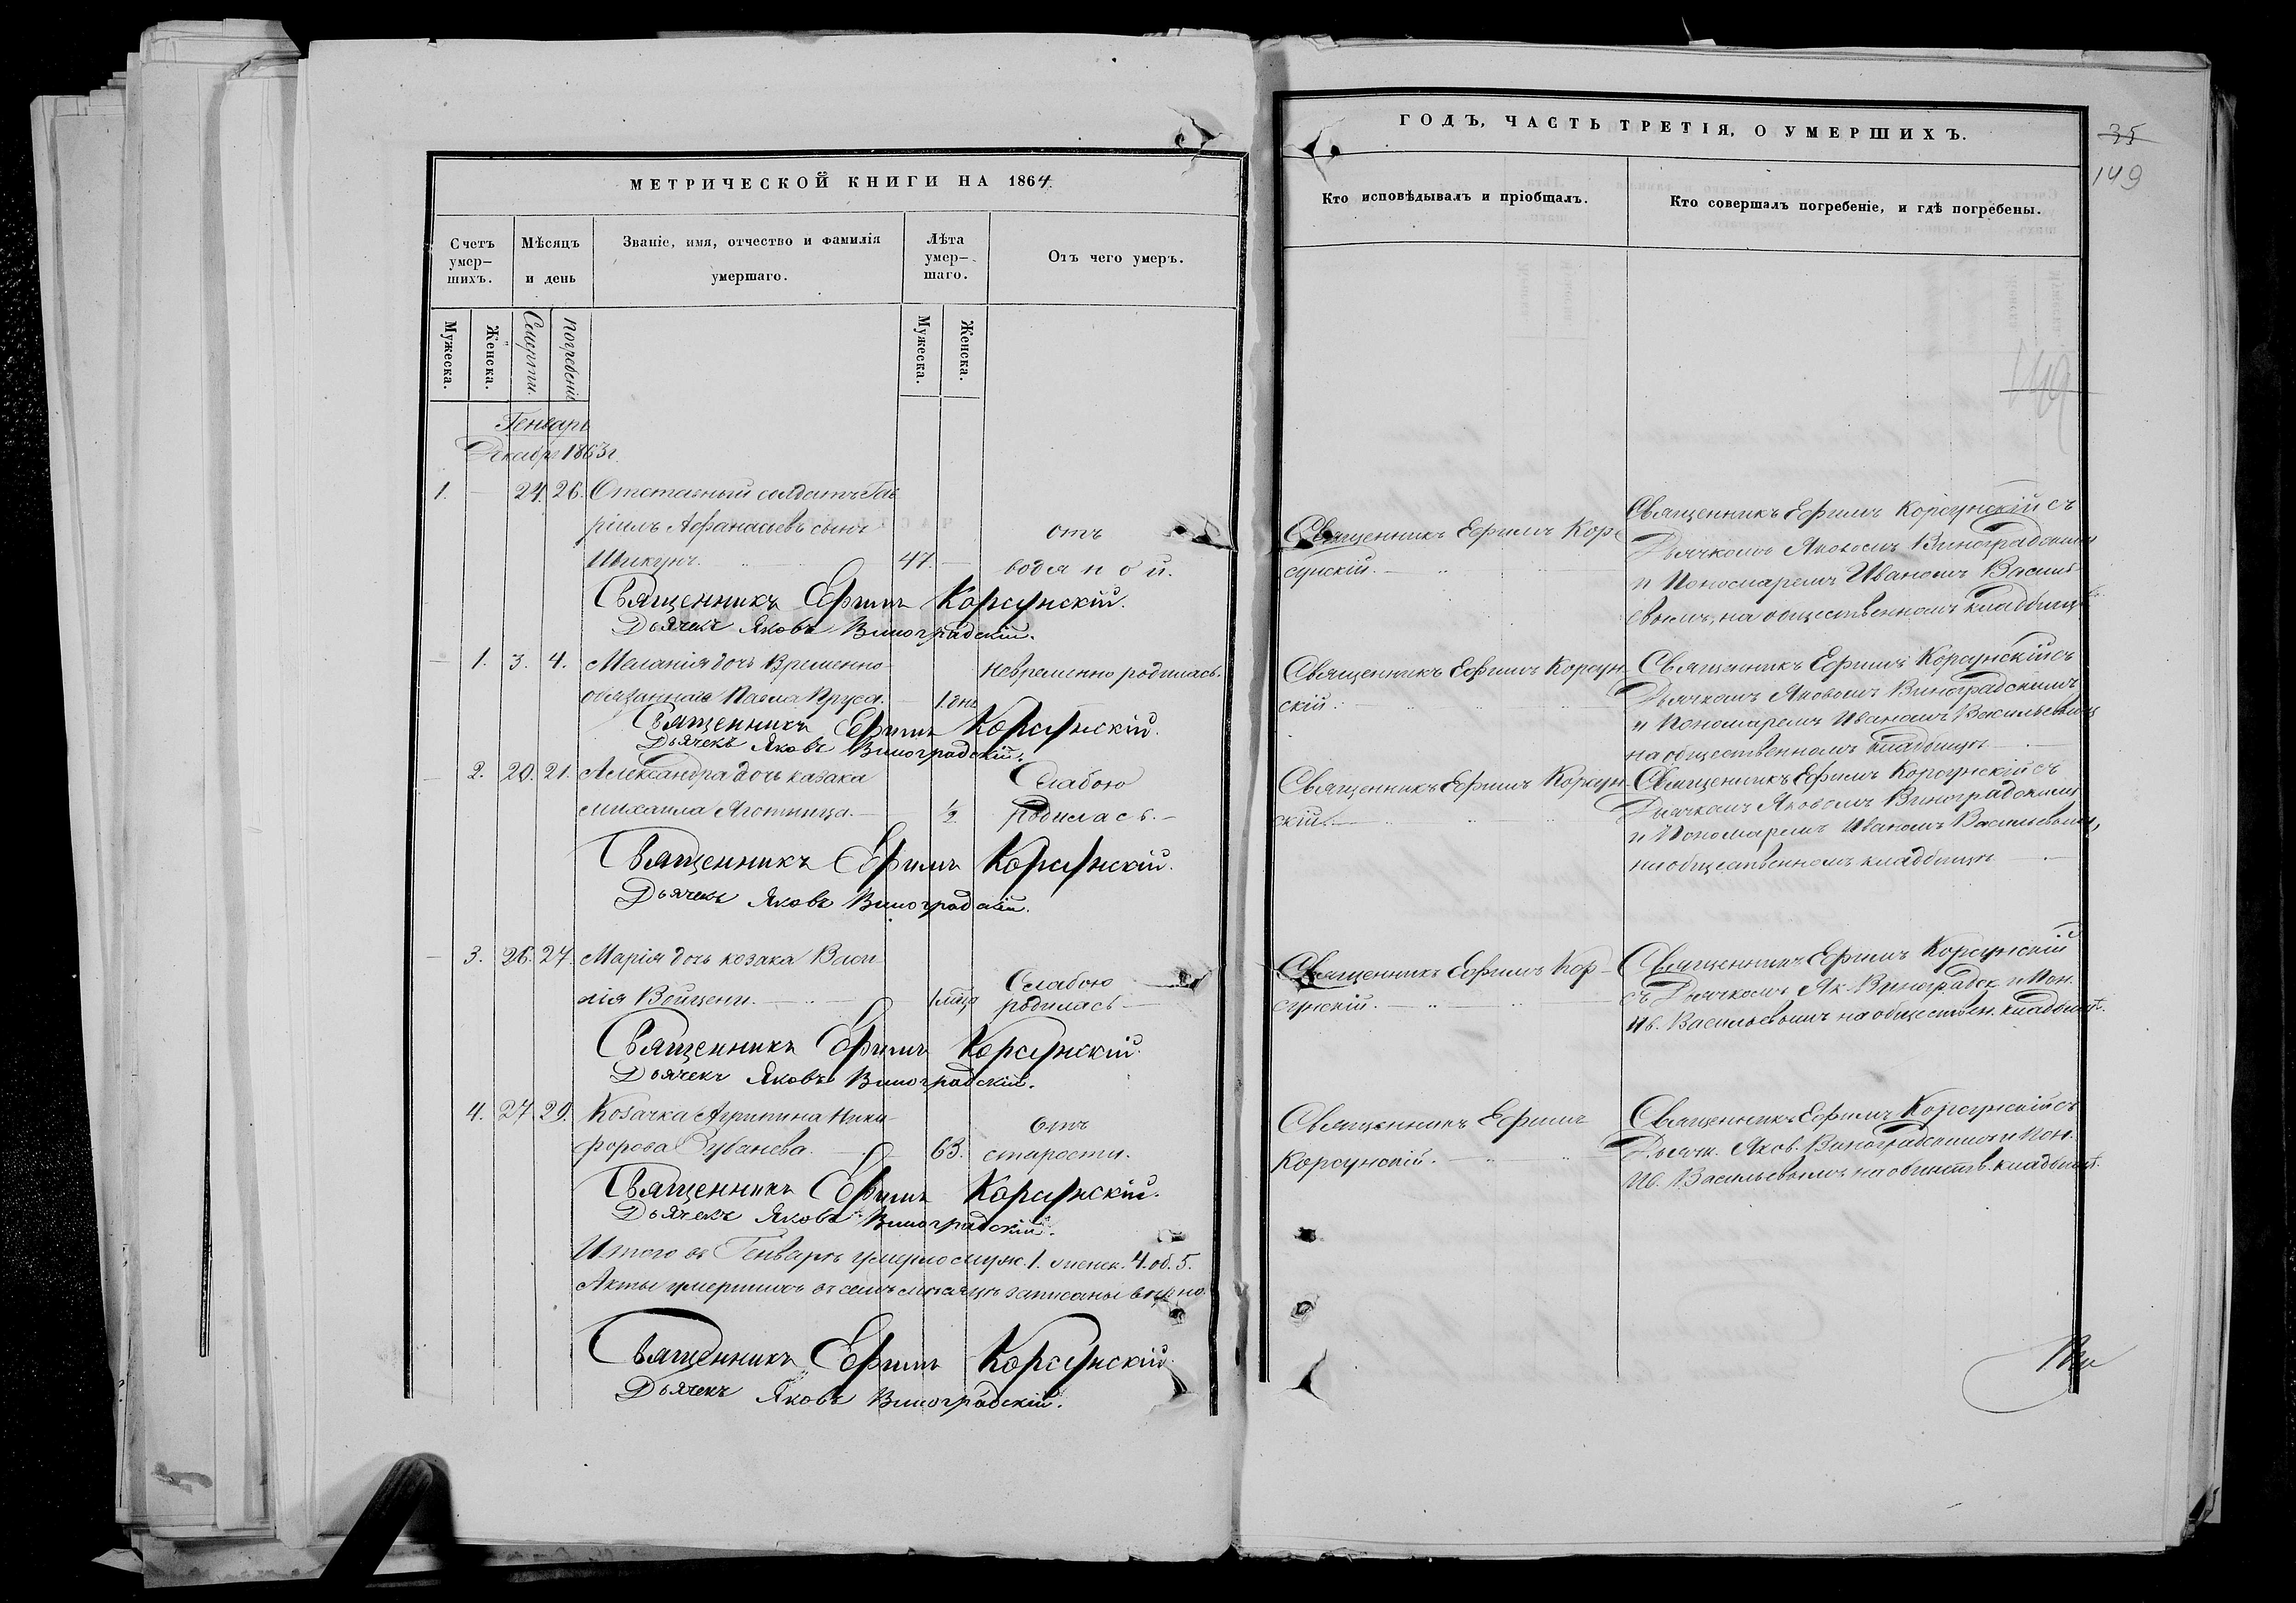 МЕТРИЧЕСКОЙ КНИГИ НА 1864.
Счетъ умер-шихъ.
Мѣсяцъ и день
Званіе, имя, отчество и фамилія умершаго.
Лѣта умер-шаго.
Отъ чего умеръ.
Мужеска.
Женска.
Смерти.
Погребенія
Мужеска.
Женска.
Генварь
Декабрь 1863 г.
1. — 24. 26. Отставный солдатъ Гав
ріилъ Афанасіевъ сынъ
Шикунъ. 47. — отъ водяной.
Священникъ Ефимъ Корсунскій.
Дьячекъ Яковъ Виноградскій.
— 1. 3. 4. Меланія дочь временно
обязаннаго Павла Пруса. 1 дня невременно родилась.
Священникъ Ефимъ Корсунскій.
Дьячекъ Яковъ Виноградскій.
— 2. 20. 21. Александра дочь казака
Михаила Яготинца. — 1/2 Слабою родилась. —
Священникъ Ефимъ Корсунскій.
Дьячекъ Яковъ Виноградскій.
— 3. 26. 27. Марія дочь козака Васи
лія Войцени. 1 мѣця Слабою родилась —
Священникъ Ефимъ Корсунскій.
Дьячекъ Яковъ Виноградскій.
4. 27. 29. Козачка Агрипина Ники
форова 63. отъ старости.
Священникъ Ефимъ Корсунскій.
Дьячекъ Яковъ Виноградскій.
Итого въ Генварѣ умерло муж. 1. женск. 4. об. 5.
Акты умершихъ въ семъ мѣсяцѣ записаны вѣрно.
Священникъ Ефимъ Корсунскій.
Дьячекъ Яковъ Виноградскій.
ГОДЪ, ЧАСТЬ ТРЕТІЯ, О УМЕРШИХЪ.
35
149
Кто исповѣдывалъ и пріобщалъ.
Кто совершалъ погребеніе, и гдѣ погребены.
149
Священникъ Ефимъ Кор
сунскій. —
Священникъ Ефимъ Корсунскій съ
Дьячкомъ Яковомъ Виноградскимъ
и Пономаремъ Иваномъ Василь
евымъ, на общественномъ кладбищѣ
Священникъ Ефимъ Корсун
скій.
Священникъ Ефимъ Корсунскій съ
Дьячкомъ Яковомъ Виноградскимъ
и Пономаремъ Иваномъ Васильевымъ
на общественномъ кладбищѣ —
Священникъ Ефимъ Корсун
скій. —
Священникъ Ефимъ Корсунскій съ
Дьячкомъ Яковомъ Виноградскимъ
и Пономаремъ Иваномъ Васильевымъ,
на общественномъ кладбищѣ —
Священникъ Ефимъ Кор-
сунскій. —
Священникъ Ефимъ Корсунскій
съ Дьячкомъ Як. Виноградск. и Пон.
Ив. Васильевымъ на обществен. кладбищѣ.
Священникъ Ефимъ
Корсунскій. —
Священникъ Ефимъ Корсунскій съ
Дьячк. Яков. Виноградскимъ и Пон.
Ив. Васильевымъ на обществ. кладбищѣ.